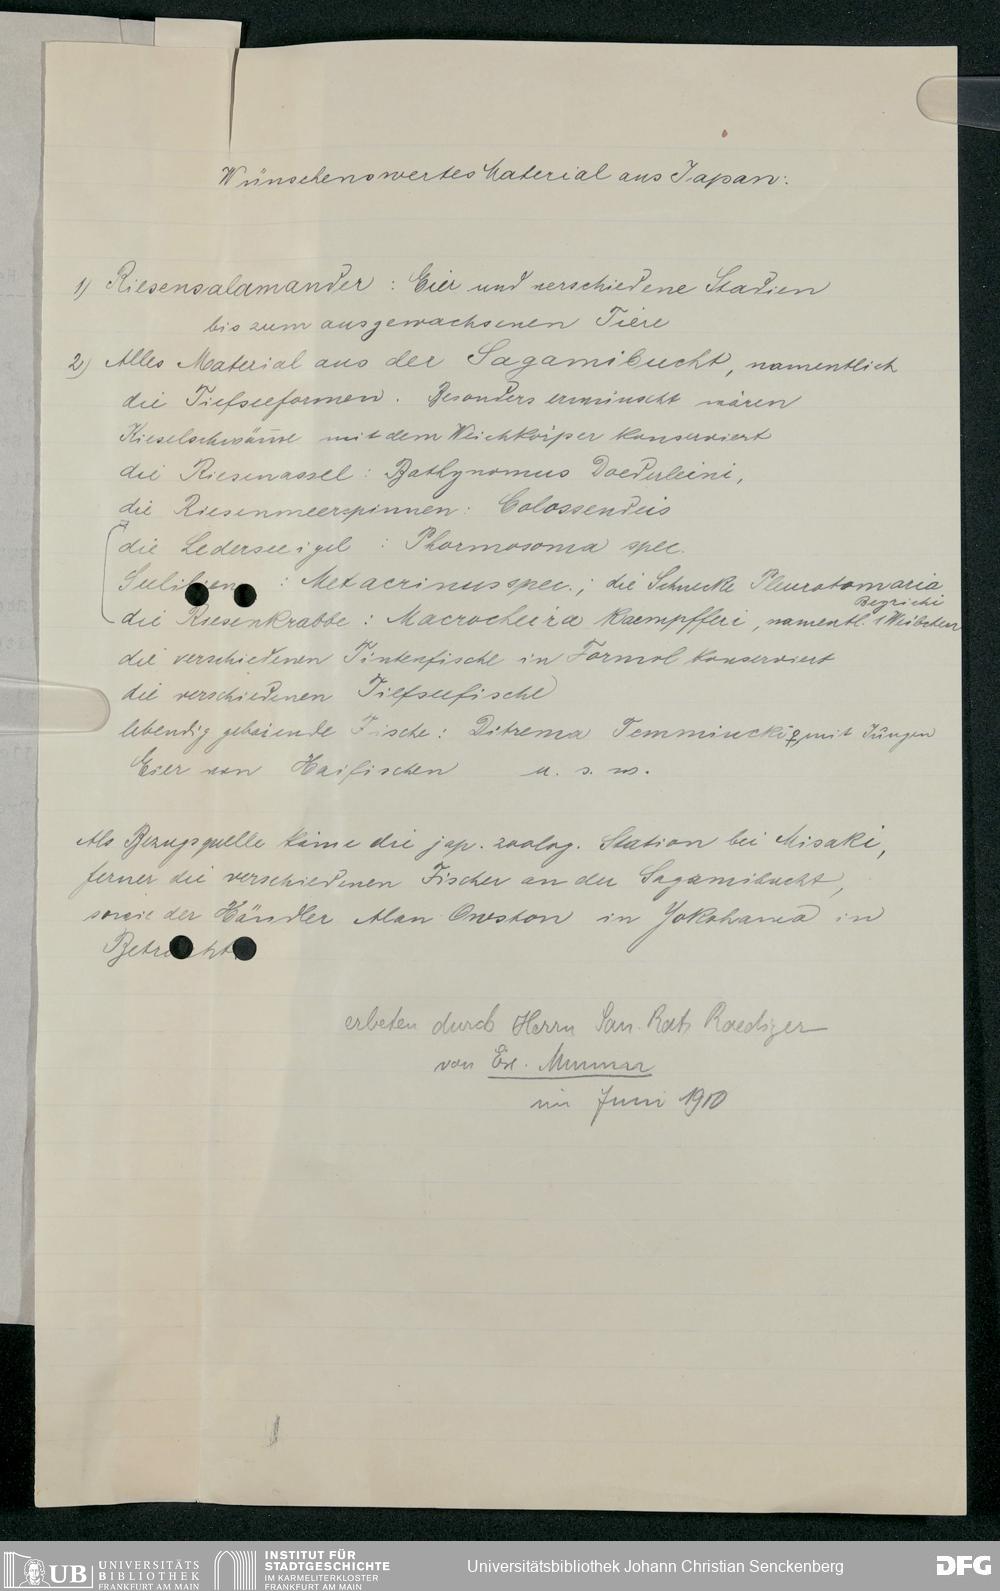 Wünschenswertes Material aus Japan:
1) Riesensalamander : Eier und verschiedene Stadien
bis zum ausgewachsenen Tiere
2) Alles Material aus der Sagamibucht, namentlich
die Tiefseeformen. Besonders erwünscht wären
Kieselschwäm̅e mit dem Weichkörper konserviert
die Riesenassel : Bathynomus Doederleini,
die Riesenmeerspinnen : Colossendeis
die Lederseeigel : Phormosoma spec.
Seelilien : Metacrinus spec.; die Schnecke Pleurotomaria
Beyrichi
die Riesenkrabbe : Macrocheira Kaempfferi, namentl. 1 Weibchen
die verschiedenen Tintenfische in Formol konserviert
die verschiedenen Tiefseefische
lebendig gebärende Fische : Ditrema Temmincki ♀ mit Jungen
Eier von Haifischen u. s. w.
Als Bezugsquelle käme die jap. zoolog. Station bei Misaki,
ferner die verschiedenen Fischer an der Sagamibucht,
sowie der Händler Alan Owston in Yokohama in
Betracht.
erbeten durch Herrn San. Rat Roediger
von Exl. Mumm
im Juni 1910
UB UNIVERSITÄTS
BIBLIOTHEK
FRANKFURT AM MAIN
INSTITUT FÜR
STADTGESCHICHTE
IM KARMELITERKLOSTER
FRANKFURT AM MAIN
Universitätsbibliothek Johann Christian Senckenberg
DFG